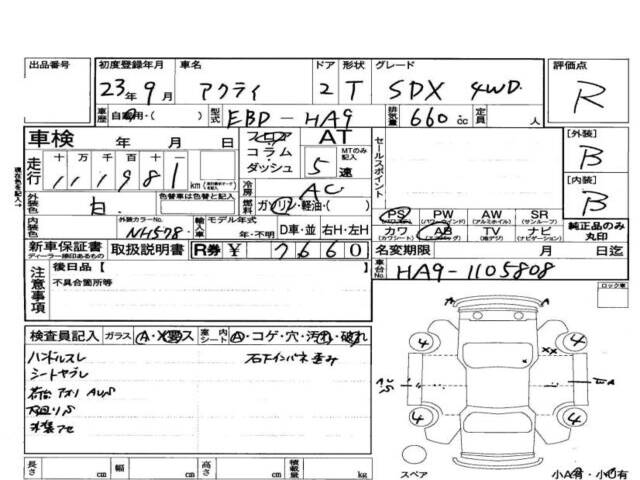 出品番号
初度登録年月 車名 ドア 形状 グレード 評価点
23年9月 アクティ 2 T SDX 4WD. R
車歴 自家用・( ) 型式 EBD-HA9 排気量 660 cc 定員 人
車検 年 月 日 フロア AT セールスポイント [外装]
コラム MTのみ記入 B
走行 十 万 千 百 十 一 ダッシュ 5 速
111981 km 冷房 AC [内装]
現在色を記入→ 外装色 白 色替車は色替と記入 燃料 ガソリン・軽油・( ) B
PS PW AW SR
(パワーウインドウ) (アルミホイル) (サンルーフ)
内装色 外装カラーNo. NH578 輸入車 モデル年式 年・不明 D車・並 右H・左H カワ AB TV ナビ 純正品のみ丸印
(カワシート) (エアバッグ) (地デジ) (ナビゲーション)
新車保証書 取扱説明書 R券 ¥ 7660 名変期限 月 日迄
ディーラー捺印あるもの
注意事項 後日品【 】 車台No. HA9-1105808
不具合箇所等 ロック車
検査員記入 ガラス A・X・要ス 室内シート A・コゲ・穴・汚れ・破れ
ハンドルスレ 右下インパネ歪み
シートヤブレ
荷台アオリAUS
下廻りS
4 4
XX
4 4
スペア 小A有・小U有
長さ cm 幅 cm 高さ cm 積載量 kg